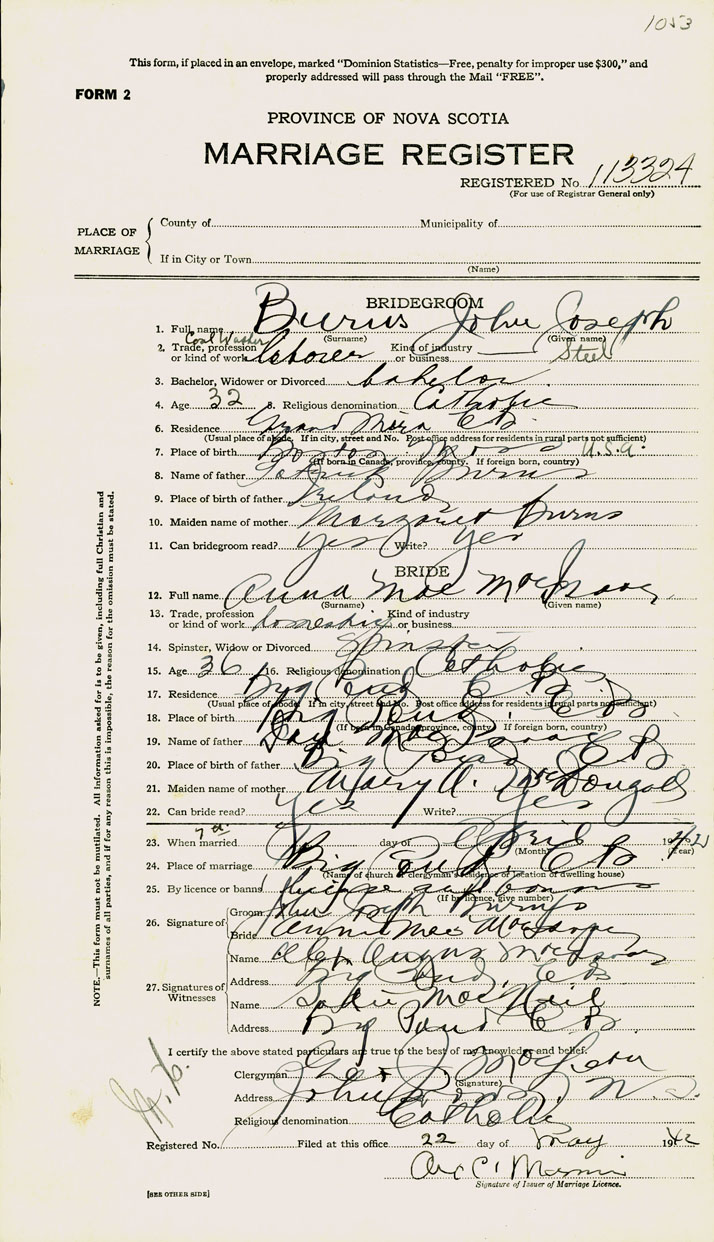 1053
This form, if placed in an envelope, marked "Dominion Statistics—Free, penalty for improper use $300," and
properly addressed will pass through the Mail "FREE".
FORM 2
PROVINCE OF NOVA SCOTIA
MARRIAGE REGISTER
REGISTERED No. 113324
(For use of Registrar General only)
PLACE OF MARRIAGE
County of Municipality of
If in City or Town
(Name)
BRIDEGROOM
1. Full name Burns John Joseph
(Surname) (Given name)
Coal Washer
2. Trade, profession or kind of work laborer Kind of industry or business Steel
3. Bachelor, Widower or Divorced bachelor
4. Age 32 5. Religious denomination Catholic
6. Residence Grand Mira C B
(Usual place of abode. If in city, street and No. Post office address for residents in rural parts not sufficient)
7. Place of birth Boston Mass U.S.A.
(If born in Canada, province, county. If foreign born, country)
8. Name of father Patrick Burns
9. Place of birth of father Ireland
10. Maiden name of mother Margaret Burns
11. Can bridegroom read? yes Write? yes
BRIDE
12. Full name Anna Mae MacIsaac
(Surname) (Given name)
13. Trade, profession or kind of work domestic Kind of industry or business
14. Spinster, Widow or Divorced Spinster
15. Age 36 16. Religious denomination Catholic
17. Residence Big Pond C B
(Usual place of abode. If in city, street and No. Post office address for residents in rural parts not sufficient)
18. Place of birth Big Pond C B
(If born in Canada, province, county. If foreign born, country)
19. Name of father Dan MacIsaac
20. Place of birth of father Big Pond C B
21. Maiden name of mother Mary A. MacDougall
22. Can bride read? yes Write? yes
23. When married 7th day of April 1942
(Month) (Year)
24. Place of marriage Big Pond, C B
(Name of church or clergyman's residence or location of dwelling house)
25. By licence or banns license and banns
(If by licence, give number)
26. Signature of Groom John Joseph Burns
Bride Anna Mae MacIsaac
27. Signatures of Witnesses
Name Alex Angus MacIsaac
Address Big Pond, C B
Name Sadie MacNeil
Address Big Pond C B
I certify the above stated particulars are true to the best of my knowledge and belief.
Clergyman J MacLean
(Signature)
Address Johnstown, N.S.
Religious denomination Catholic
Registered No. Filed at this office 22 day of May 1942
Signature of Issuer of Marriage Licence.
[SEE OTHER SIDE]
NOTE.—This form must not be mutilated. All information asked for is to be given, including full Christian and
surnames of all parties, and if for any reason this is impossible, the reason for the omission must be stated.